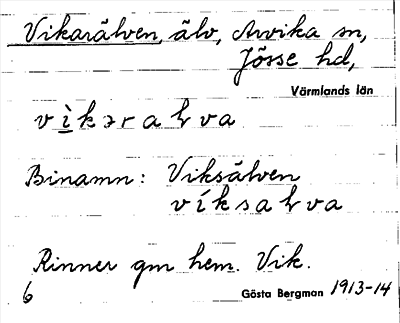 Vikarälven, älv, Arvika sn,
Jösse hd,
Värmlands län
vìkəralva
Binamn: Viksälven
víksalva
Rinner gm hem. Vik.
6 Gösta Bergman 1913-14